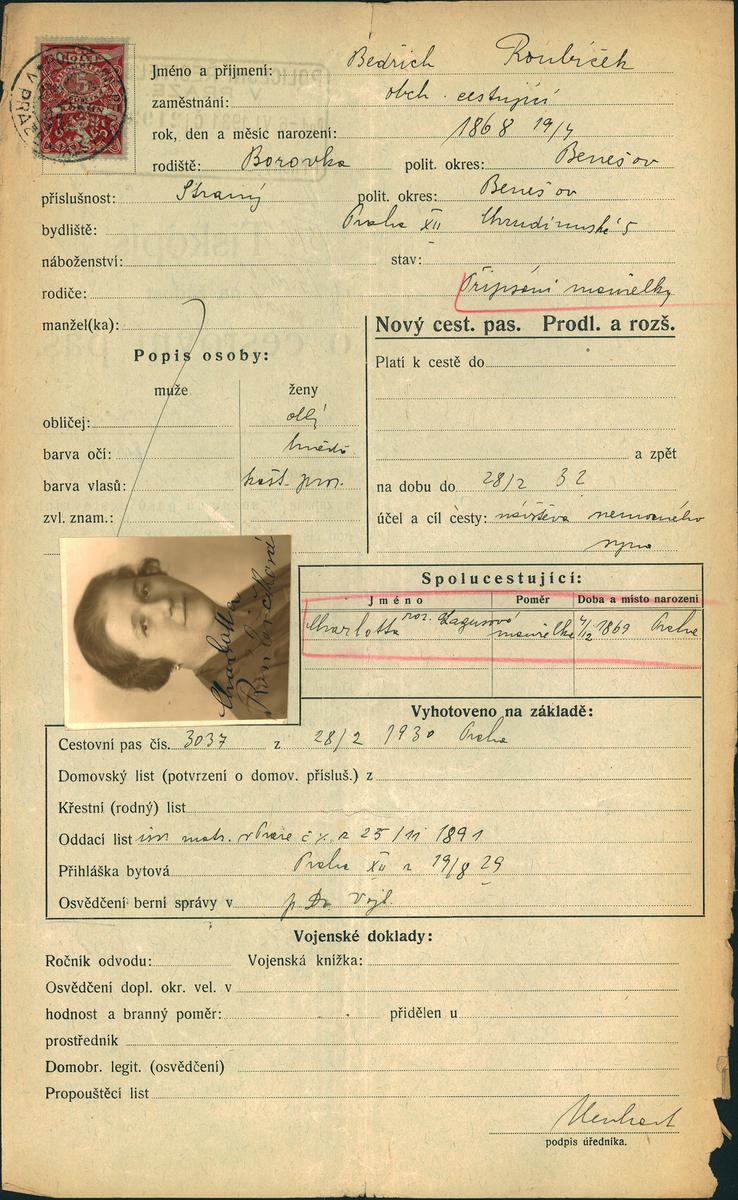 Jméno a příjmení: Bedřich Roubíček
zaměstnání: obch. cestující
rok, den a měsíc narození: 1868 19/4
rodiště: Borovka polit. okres: Benešov
příslušnost: Straný polit. okres: Benešov
bydliště: Praha XII Chrudimská 5
náboženství: stav:
rodiče: Připsání manželky
manžel(ka):
Nový cest. pas. Prodl. a rozš.
Popis osoby:
Platí k cestě do
muže ženy
obličej: obl.
barva očí: hnědé
a zpět
barva vlasů: kašt. pro.
na dobu do 28/2 32
zvl. znam.:
účel a cíl cesty: návštěva nemocného
syna
Charlotta
Roubíčková
Spolucestující:
Jméno Poměr Doba a místo narození
Charlotta roz. Lagusová manželka 4/12 1869 Praha
Vyhotoveno na základě:
Cestovní pas čís. 3037 z 28/2 1930 Praha
Domovský list (potvrzení o domov. přísluš.) z
Křestní (rodný) list
Oddací list isr. matr. v Praze č. z 25/11 1891
Přihláška bytová Praha XII z 19/8 29
Osvědčení berní správy v p. Dr. Vojl.
Vojenské doklady:
Ročník odvodu: Vojenská knížka:
Osvědčení dopl. okr. vel. v
hodnost a branný poměr: přidělen u
prostředník
Domobr. legit. (osvědčení)
Propouštěcí list
podpis úředníka.